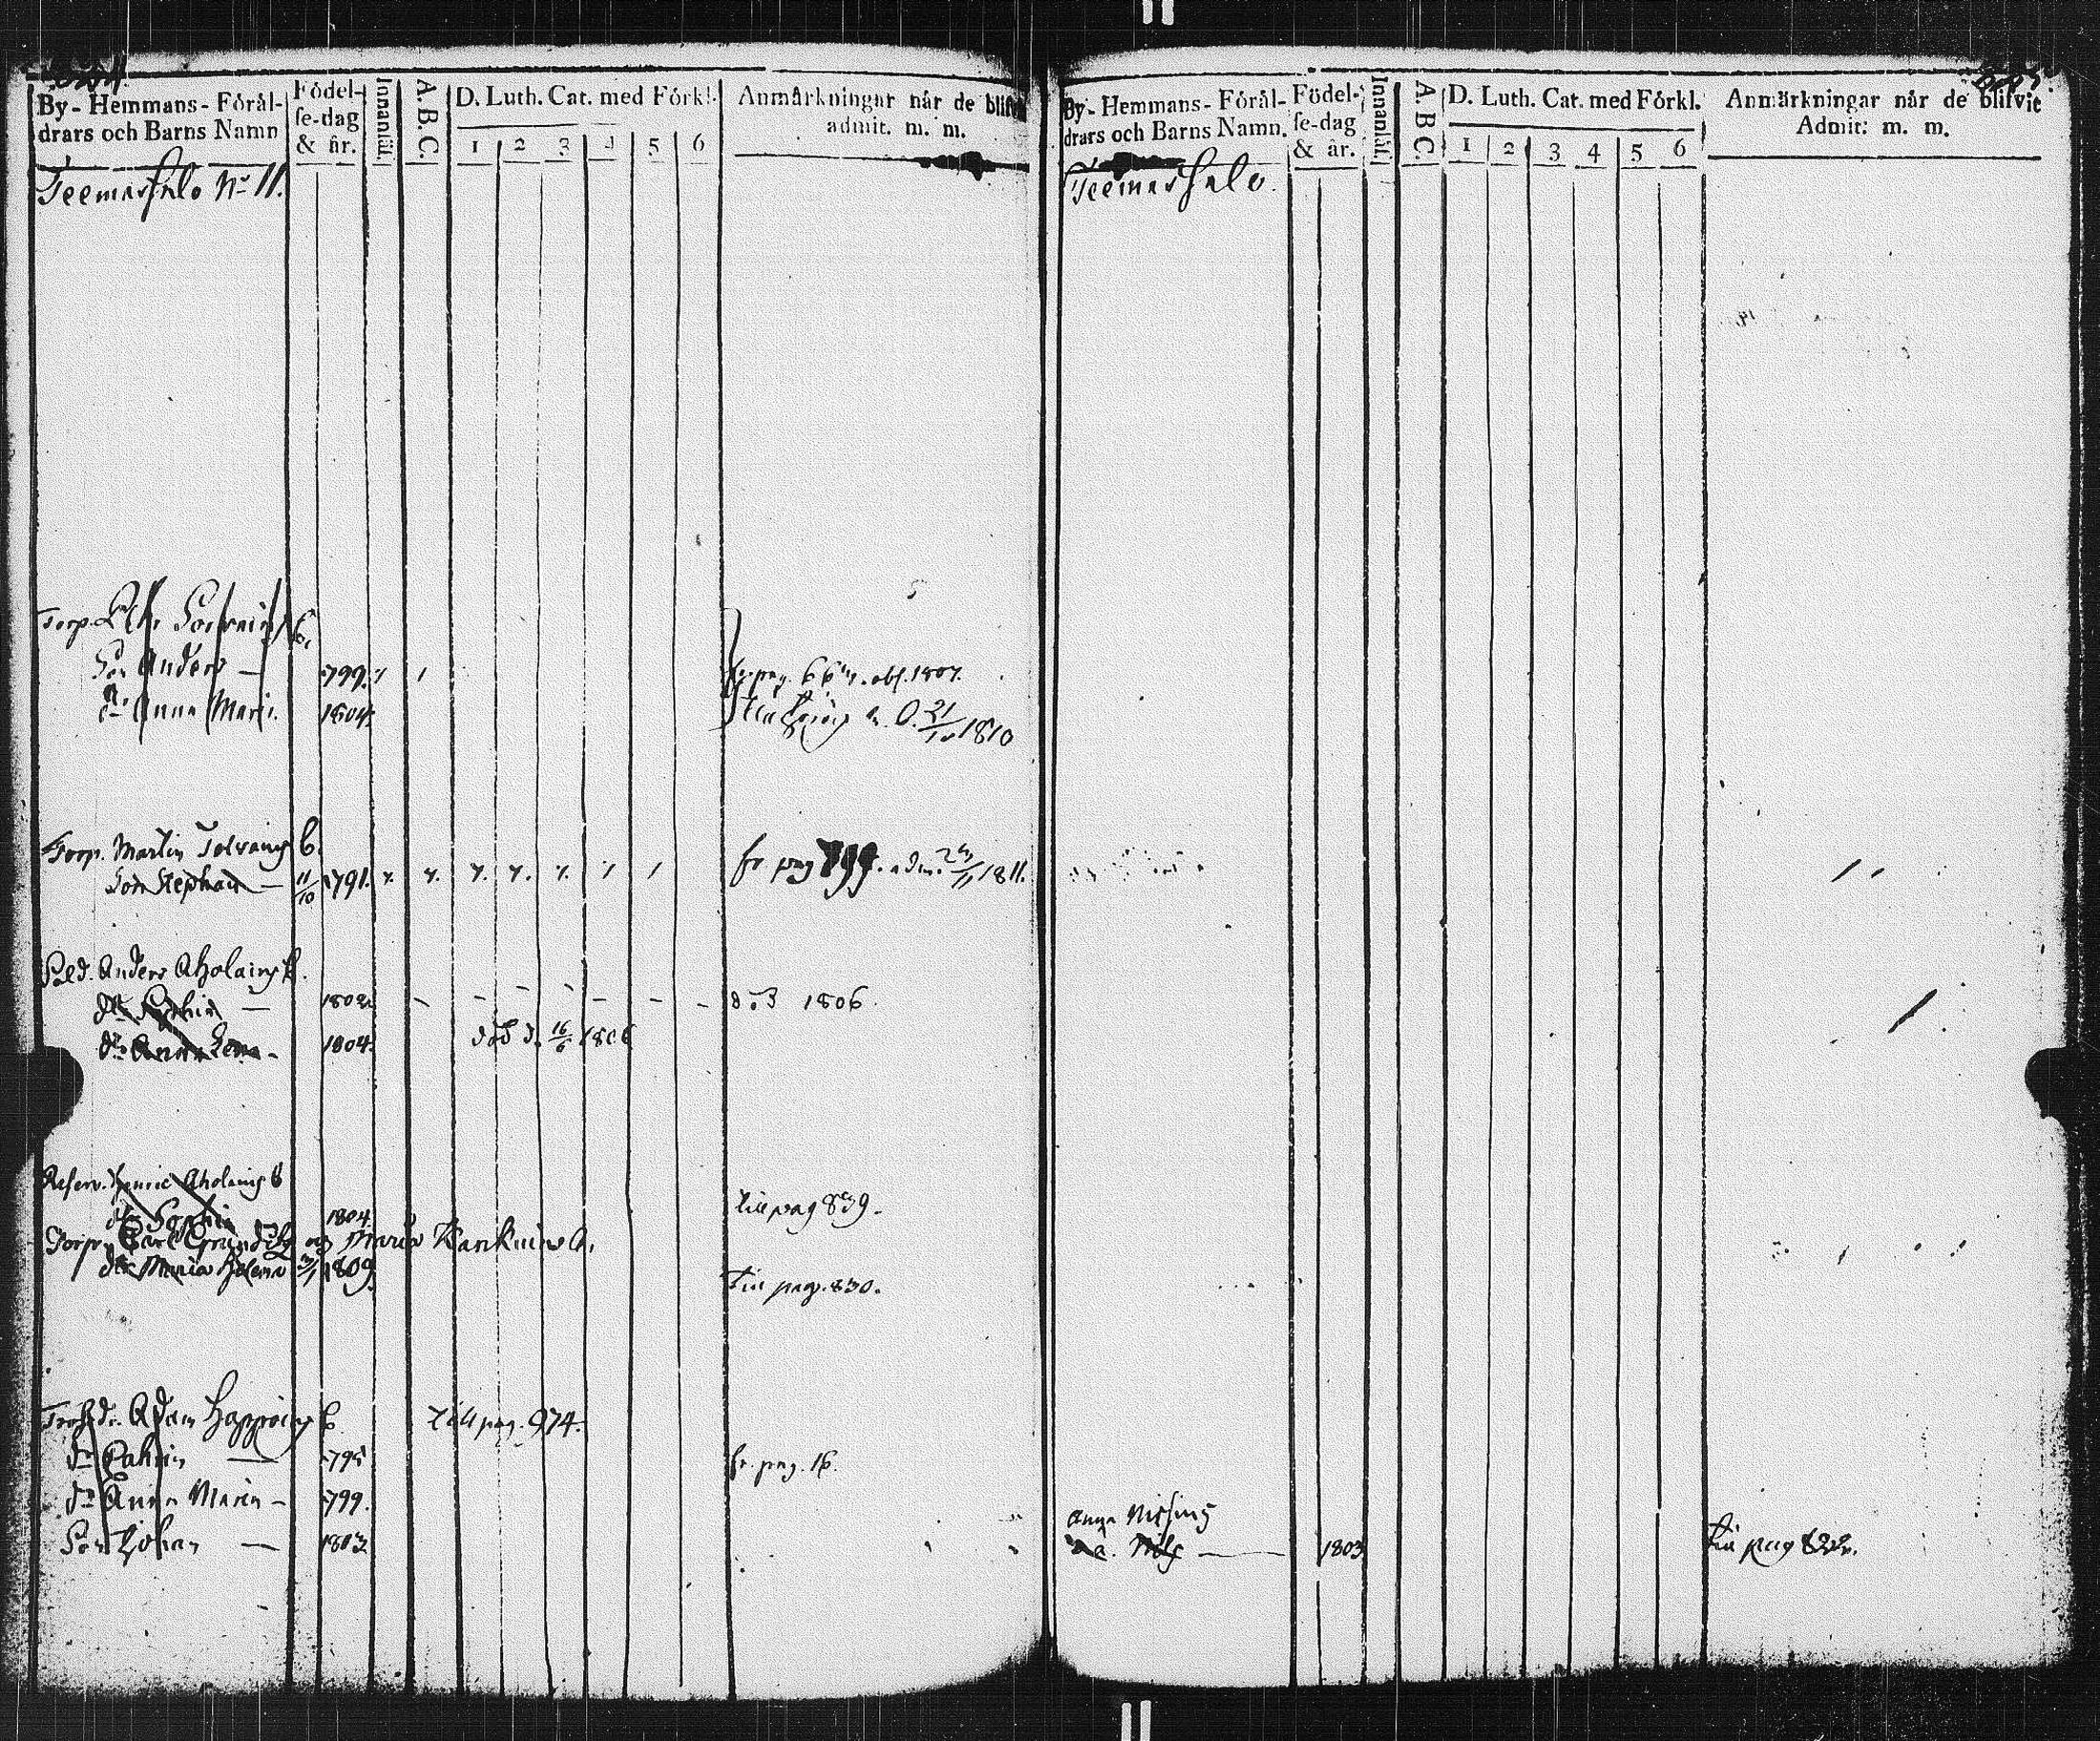 By-Hemmans-Föräl-
drars och Barns Namn
Födel-
se-dag
& år.
Innanläs.
A. B. C.
D. Luth. Cat. med Förkl.
1 2 3 4 5 6
Anmärkningar når de blifvit
admit. m. m.
Teemassalo No 11.
Torp.
Son Anders — 799.
dr Anna Mari. 1804.
fr. pag. 66 obs. 1807.
21/10 1810
Torp. Martin Tolvaing b.
Son Stephan — 11/10 1791.
fr pag 799. adm. 1811.
Sold. Anders Aholaing b.
dr Sophia — 1802 död 1806.
dr Anna Lena - 1804. död d. 16/6 1806
Reserv. Henric Aholaing b
dr Sophia 1804 till pag 839.
Torp. Carl Grundstr og Maria Karkuin b.
dr Maria Helena 1809. till pag. 830.
Adam Happoing b. till pag. 974.
dr Catrin — 795 fr. pag. 16.
dr Anna Maria - 799.
Son Johan — 1803
By-Hemmans-Föräl-
drars och Barns Namn.
Födel-
se-dag
& år.
Innanläs.
A. B. C.
D. Luth. Cat. med Förkl.
1 2 3 4 5 6
Anmärkningar når de blifvit
Admit: m. m.
Teemassalo.
Anna Nissing
Nils — 1803 till pag